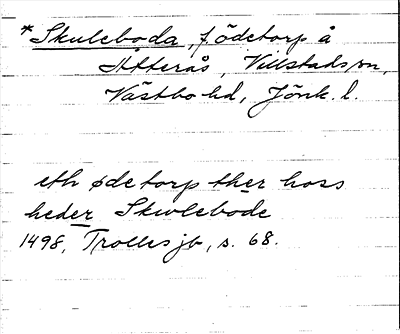 *Skuleboda, f ödetorp å
Åtterås, Villstads sn,
Västbo hd, Jönk. l.
eth ødetorp ther hoss
heder Skwlebode
1498, Trolles jb, s. 68.